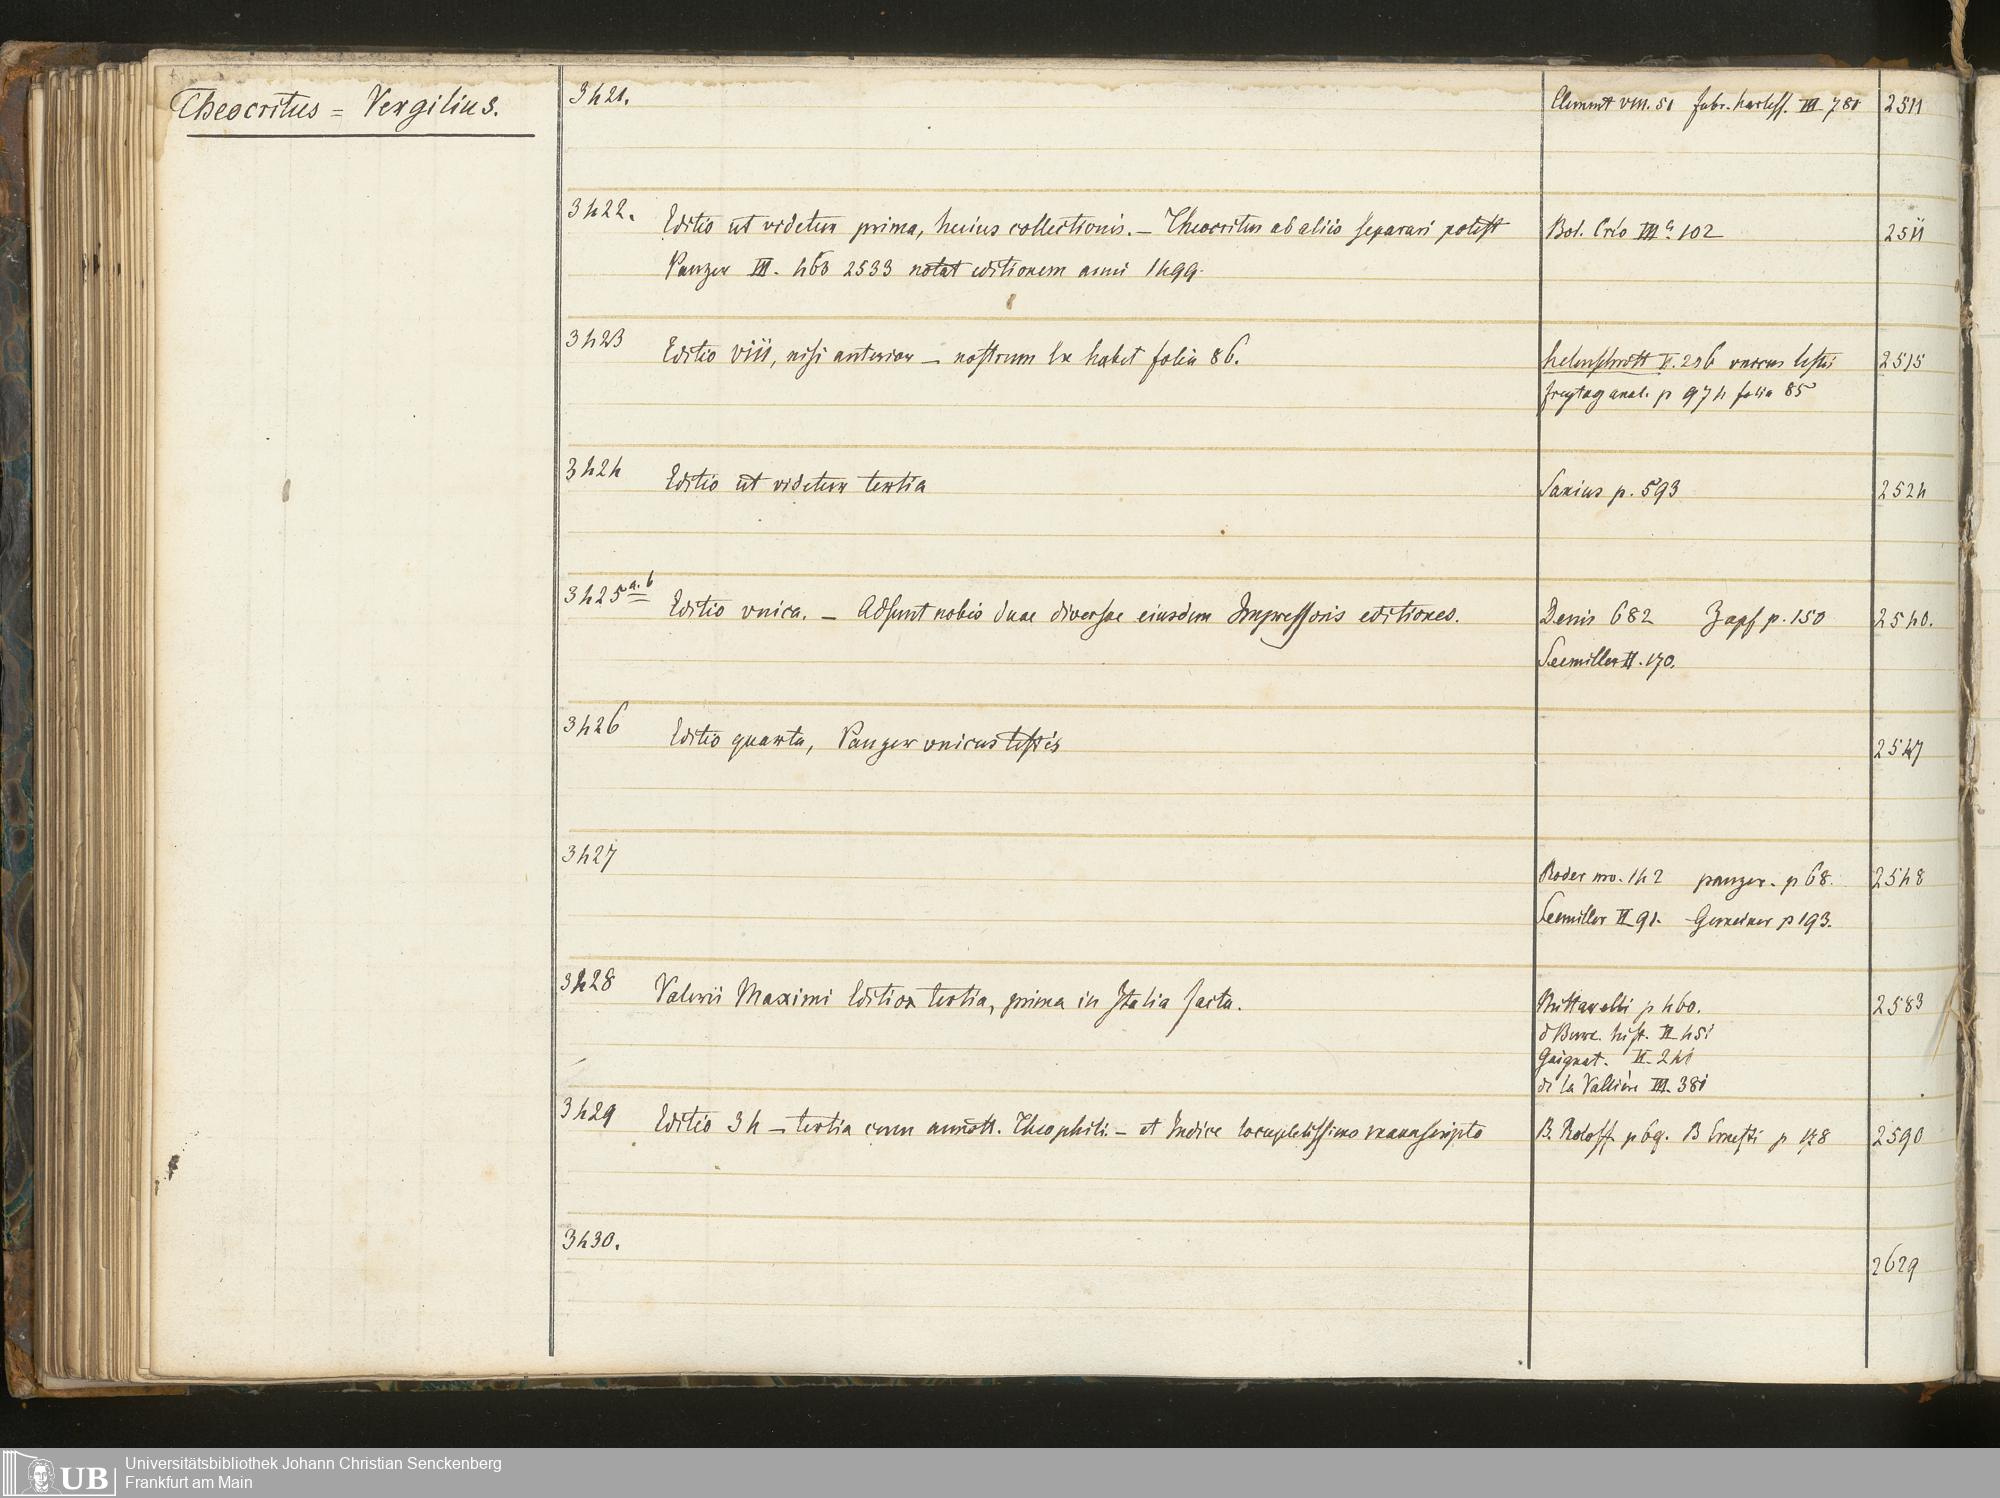 Theocritus = Vergilius.
3421. Clement VIII. 51 fabr. harless. III 781 2511
3422. Editio ut videtur prima, huius collectionis. — Theocritus ab aliis separari potest Bol. Crlo III 102 2511
Panzer III. 463 2533 notat editionem anni 1499.
3423 Editio VIII, nisi anterior — nostrum Ex habet folia 86. helmschrott I. 296 unicus testis 2515
freytag anal. p 974 folia 85
3424 Editio ut videtur tertia Saxius p. 593 2524
3425 a. b Editio unica. — Adsunt nobis duae diversae eiusdem Impressoris editiones. Denis 682 Zapf p. 150 2540.
Seemiller II. 170.
3426 Editio quarta, Panzer unicus testis 2547
3427 Roder no. 142 panzer. p 68. 2548
Seemiller II 91. Gemeiner p 193.
3428 Valerii Maximi Editio tertia, prima in Italia facta. Mittarelli p 460. 2583
d Bure. hist. II 451
Gaignat. II. 241
de la Vallière III. 381
3429 Editio 34 — tertia cum annott. Theophili. — et Indice locupletissimo manuscripto B. Roloff p 69. B Ernesti p 178 2590
3430.
2629
UB
Universitätsbibliothek Johann Christian Senckenberg
Frankfurt am Main